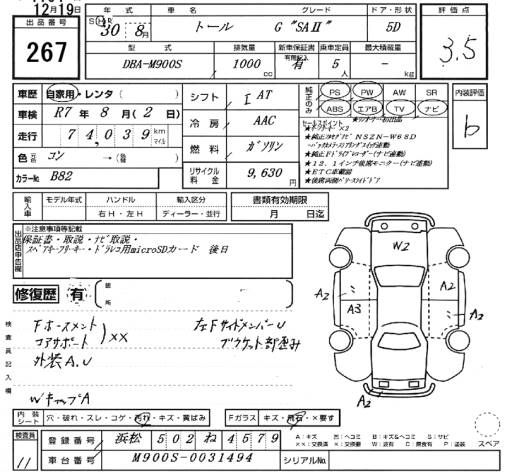 12月19日
出品番号
267
年式 車名 グレード ドア・形状
30 8月 トール G "SAⅡ" 5D
型式 排気量 新車保証書 乗車定員 最大積載量
DBA-M900S 1000 cc 有 5 人 - kg
評価点
3.5
車歴 自家用・レンタ ( )
車検 R7年 8月 ( 2日 )
走行 74,039 km マイル
色 コン → ( )
カラーNo B82
シフト I AT
冷房 AAC
燃料 ガソリン
リサイクル料金 9,630 円
純正のみ PS PW AW SR
ABS エアB TV ナビ
内装評価
b
セールスポイント
★純正ナビ NSZN-W68D
★純正Fドライブレコーダー(ナビ連動)
★12.1インチ後席モニター(ナビ連動)
★ETC車載器
★後席両側パワースライドドア
輸入車 モデル年式 ハンドル 輸入区分
右H・左H ディーラー・並行
書類有効期限
月 日迄
出品店申告欄
※注意事項等記載
保証書・取説・ナビ取説・
スペアキーフリーキー・ドラレコ用microSDカード 後日
修復歴 有 箇所
検査員記入欄
Fホースメント
コアサポート ××
外装A.U
左FサイドメンバーU
ブラケット部歪み
WキャップA
W2
A2 A2 A2
A3
A2
A2
内装シート 穴・破れ・スレ・コゲ・汚れ・キズ・黄ばみ
Fガラス キズ・飛石・×要す
検査員
11
登録番号 浜松 502 ね 4579
車台番号 M900S-0031494
シリアルNo.
A:キズ U:ヘコミ B:キズ&ヘコミ S:サビ
××:交換済 ×:要交換 W:波有 C:腐食有 P:塗装
スペア